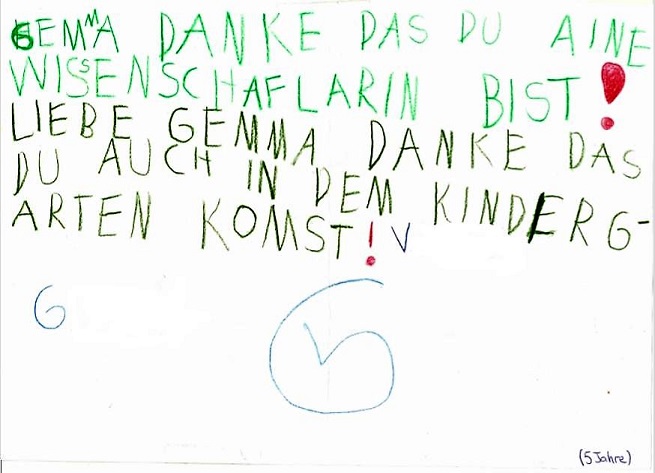 GEMMA DANKE DAS DU AINE
WISSENSCHAFLARIN BIST!
LIEBE GEMMA DANKE DAS
DU AUCH IN DEM KINDERG-
ARTEN KOMST! V
G
G
(5 Jahre)